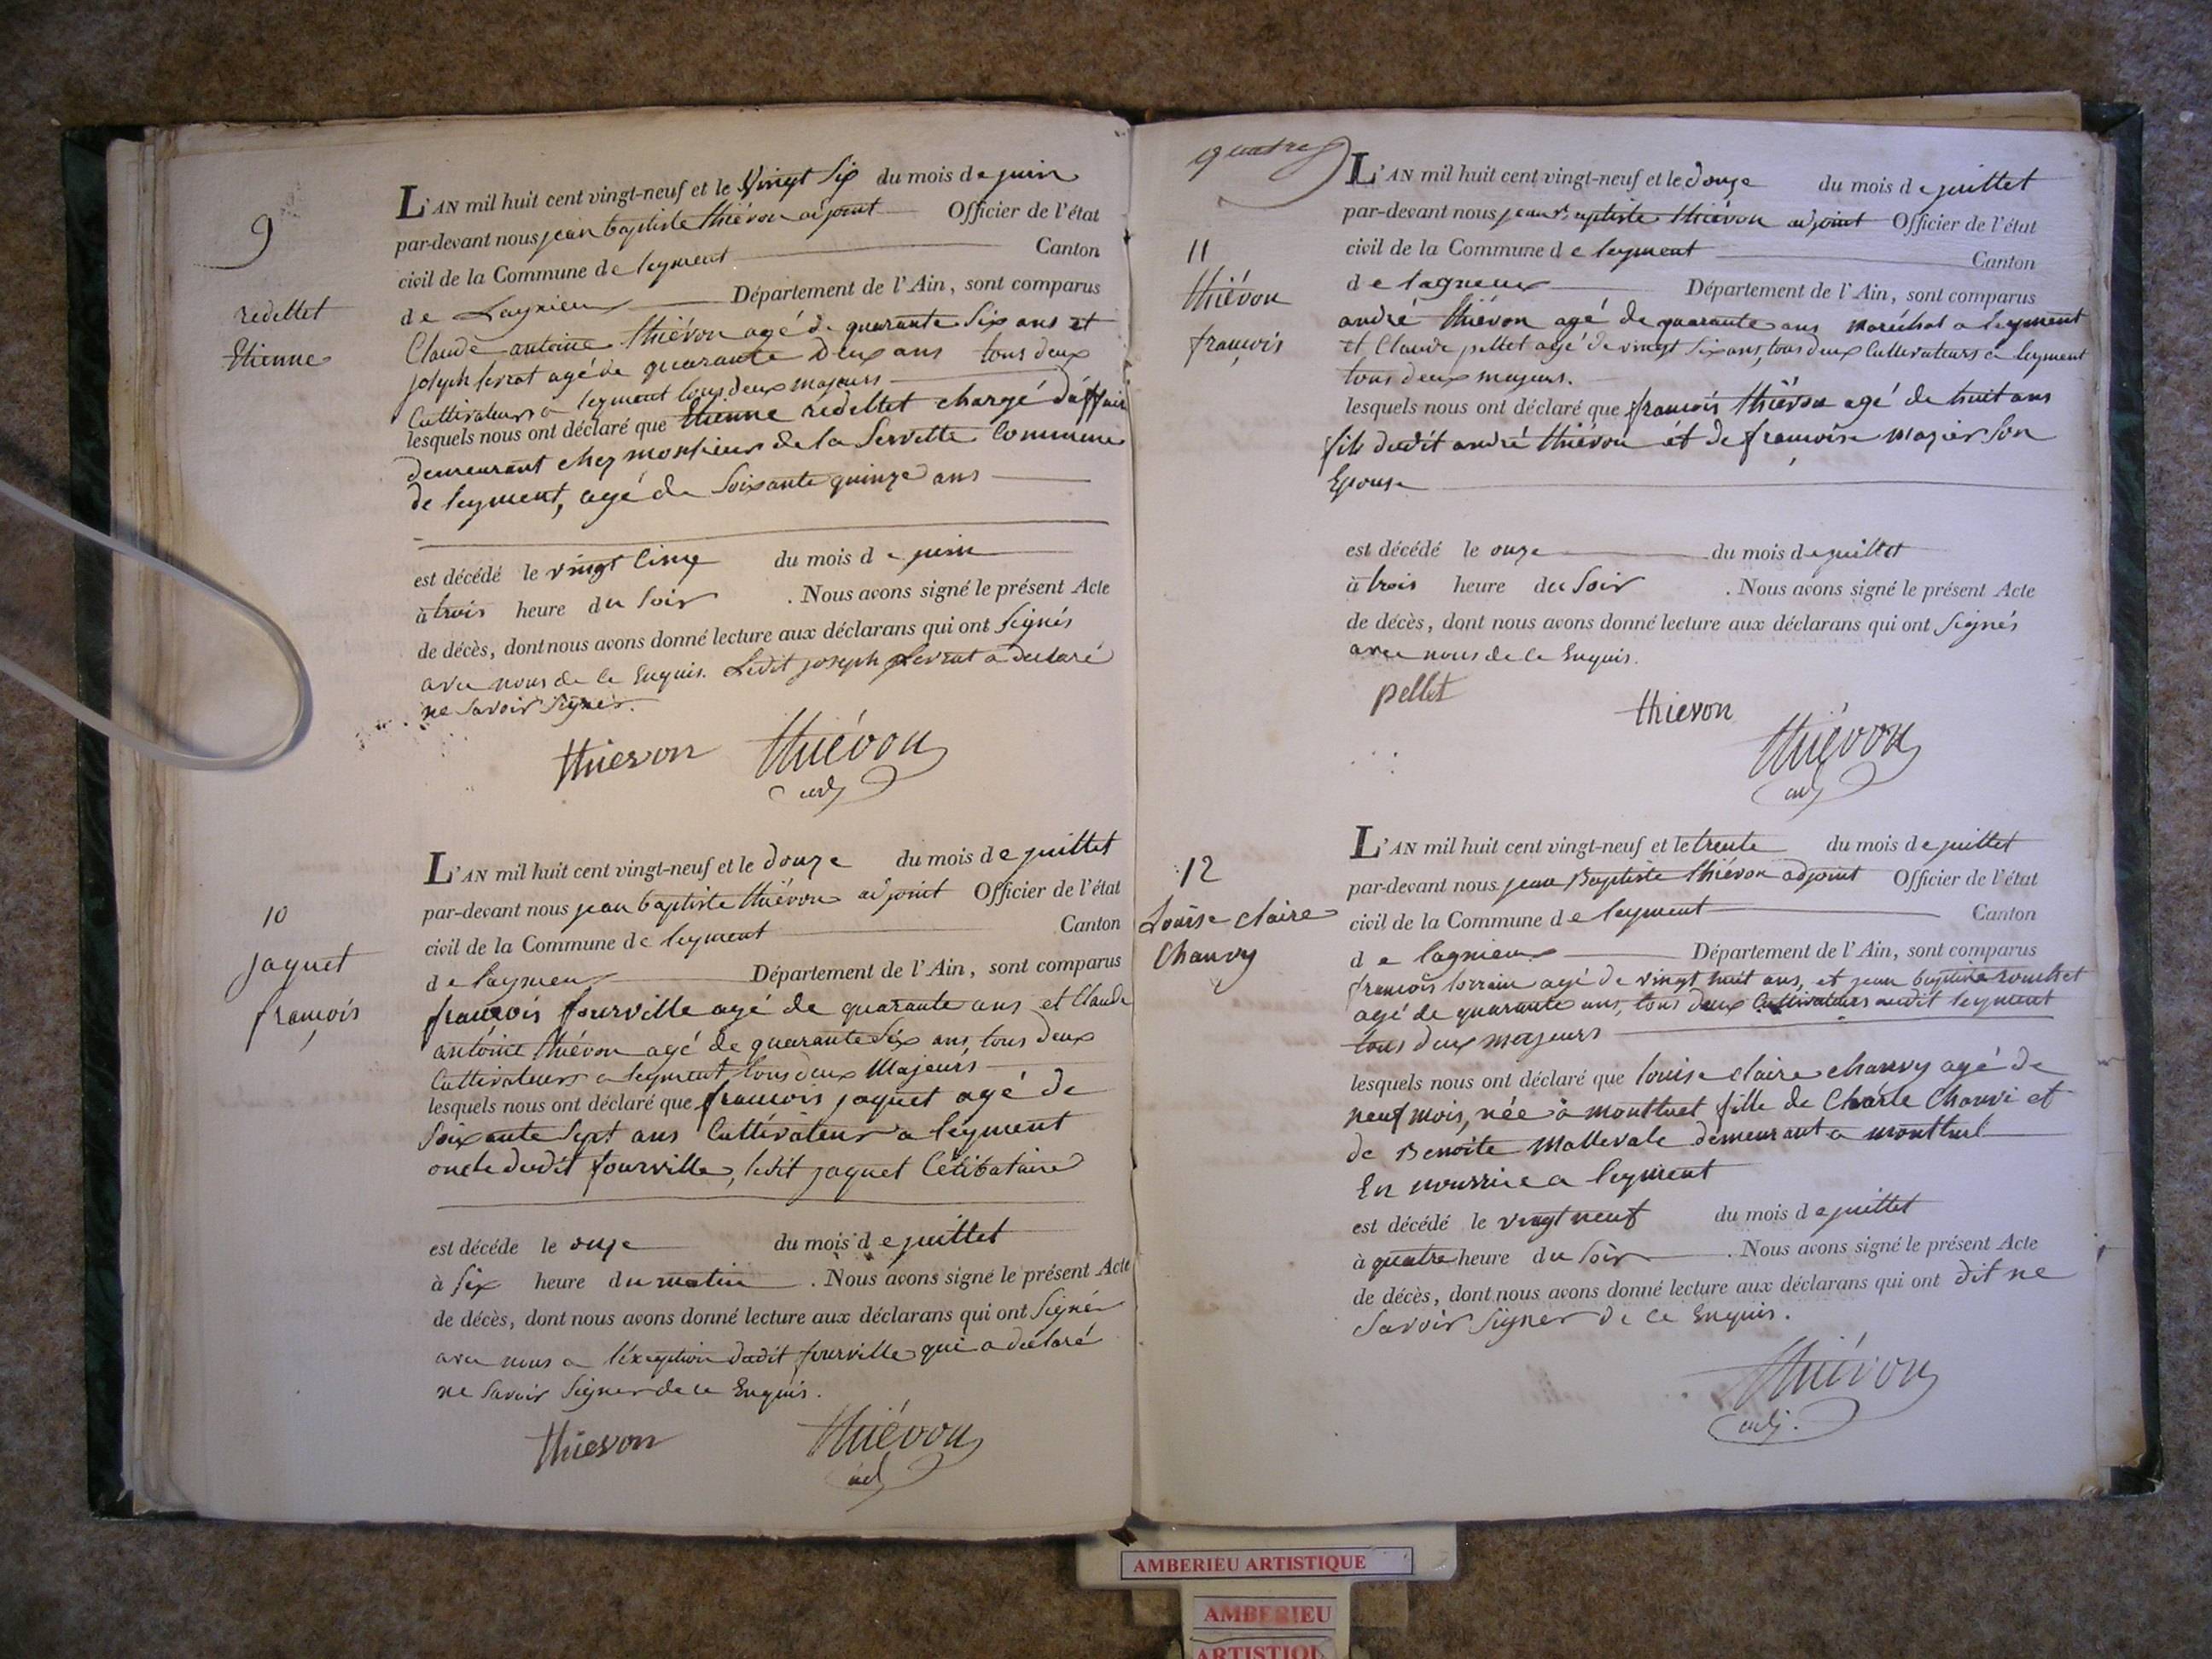 9
redettet
Etienne
L'AN mil huit cent vingt-neuf et le Vingt Six du mois de juin
par-devant nous jean baptiste thiévon adjoint Officier de l'état
civil de la Commune de leyment Canton
de Lagnieux Département de l'Ain, sont comparus
Claude antoine thiévon agé de quarante Six ans et
joseph levrat agé de quarante deux ans tous deux
Cultivateurs a leyment tous deux majeurs
lesquels nous ont déclaré que Etienne redettet chargé d'affair
demeurant chez monsieur de la Servette Commune
de leyment, agé de Soixante quinze ans
est décédé le vingt Cinq du mois de juin
à trois heure du Soir . Nous avons signé le présent Acte
de décès, dont nous avons donné lecture aux déclarans qui ont Signés
avec nous de ce Enquis. Ledit joseph Levrat a déclaré
ne Savoir Signer.
thievon thiévon
adj
10
jaquet
françois
L'AN mil huit cent vingt-neuf et le douze du mois de juillet
par-devant nous jean baptiste thiévon adjoint Officier de l'état
civil de la Commune de leyment Canton
de lagnieux Département de l'Ain, sont comparus
françois fourville agé de quarante ans et Claude
antoine thiévon agé de quarante Six ans, tous deux
Cultivateurs a leyment tous deux Majeurs
lesquels nous ont déclaré que françois jaquet agé de
Soixante Sept ans Cultivateur a leyment
oncle dudit fourville, ledit jaquet Célibataire
est décédé le onze du mois de juillet
à Six heure du matin . Nous avons signé le présent Acte
de décès, dont nous avons donné lecture aux déclarans qui ont Signé
avec nous a l'exeption dudit fourville qui a déclaré
ne Savoir Signer de ce Enquis.
thievon thiévon
adj
quatre
11
thiévon
françois
L'AN mil huit cent vingt-neuf et le douze du mois de juillet
par-devant nous jean Baptiste thiévon adjoint Officier de l'état
civil de la Commune de leyment Canton
de lagnieux Département de l'Ain, sont comparus
andré thiévon agé de quarante ans maréchal a leyment
et Claude pellet agé de vingt Six ans, tous deux Cultivateurs a leyment
tous deux majeurs.
lesquels nous ont déclaré que françois thiévon agé de huit ans
fils dudit andré thiévon et de françoise mazier Son
Epouse
est décédé le onze du mois de juillet
à trois heure du Soir . Nous avons signé le présent Acte
de décès, dont nous avons donné lecture aux déclarans qui ont Signés
avec nous de ce Enquis.
pellet
thievon
thiévon
adj
12
Louise claire
Chanvy
L'AN mil huit cent vingt-neuf et le trente du mois de juillet
par-devant nous jean Baptiste thiévon adjoint Officier de l'état
civil de la Commune de leyment Canton
de lagnieux Département de l'Ain, sont comparus
françois lorrain agé de vingt huit ans, et jean baptiste
agé de quarante ans, tous deux Cultivateurs audit leyment
tous deux majeurs
lesquels nous ont déclaré que louise claire chanvy agé de
neuf mois, née a montluel fille de Charle Chanvi et
de Benoite Mallevale demeurant a montluel
En nourrice a leyment
est décédé le vingt neuf du mois de juillet
à quatre heure du Soir . Nous avons signé le présent Acte
de décès, dont nous avons donné lecture aux déclarans qui ont dit ne
Savoir Signer de ce Enquis.
thiévon
adj.
AMBERIEU ARTISTIQUE
AMBERIEU
ARTISTIQU